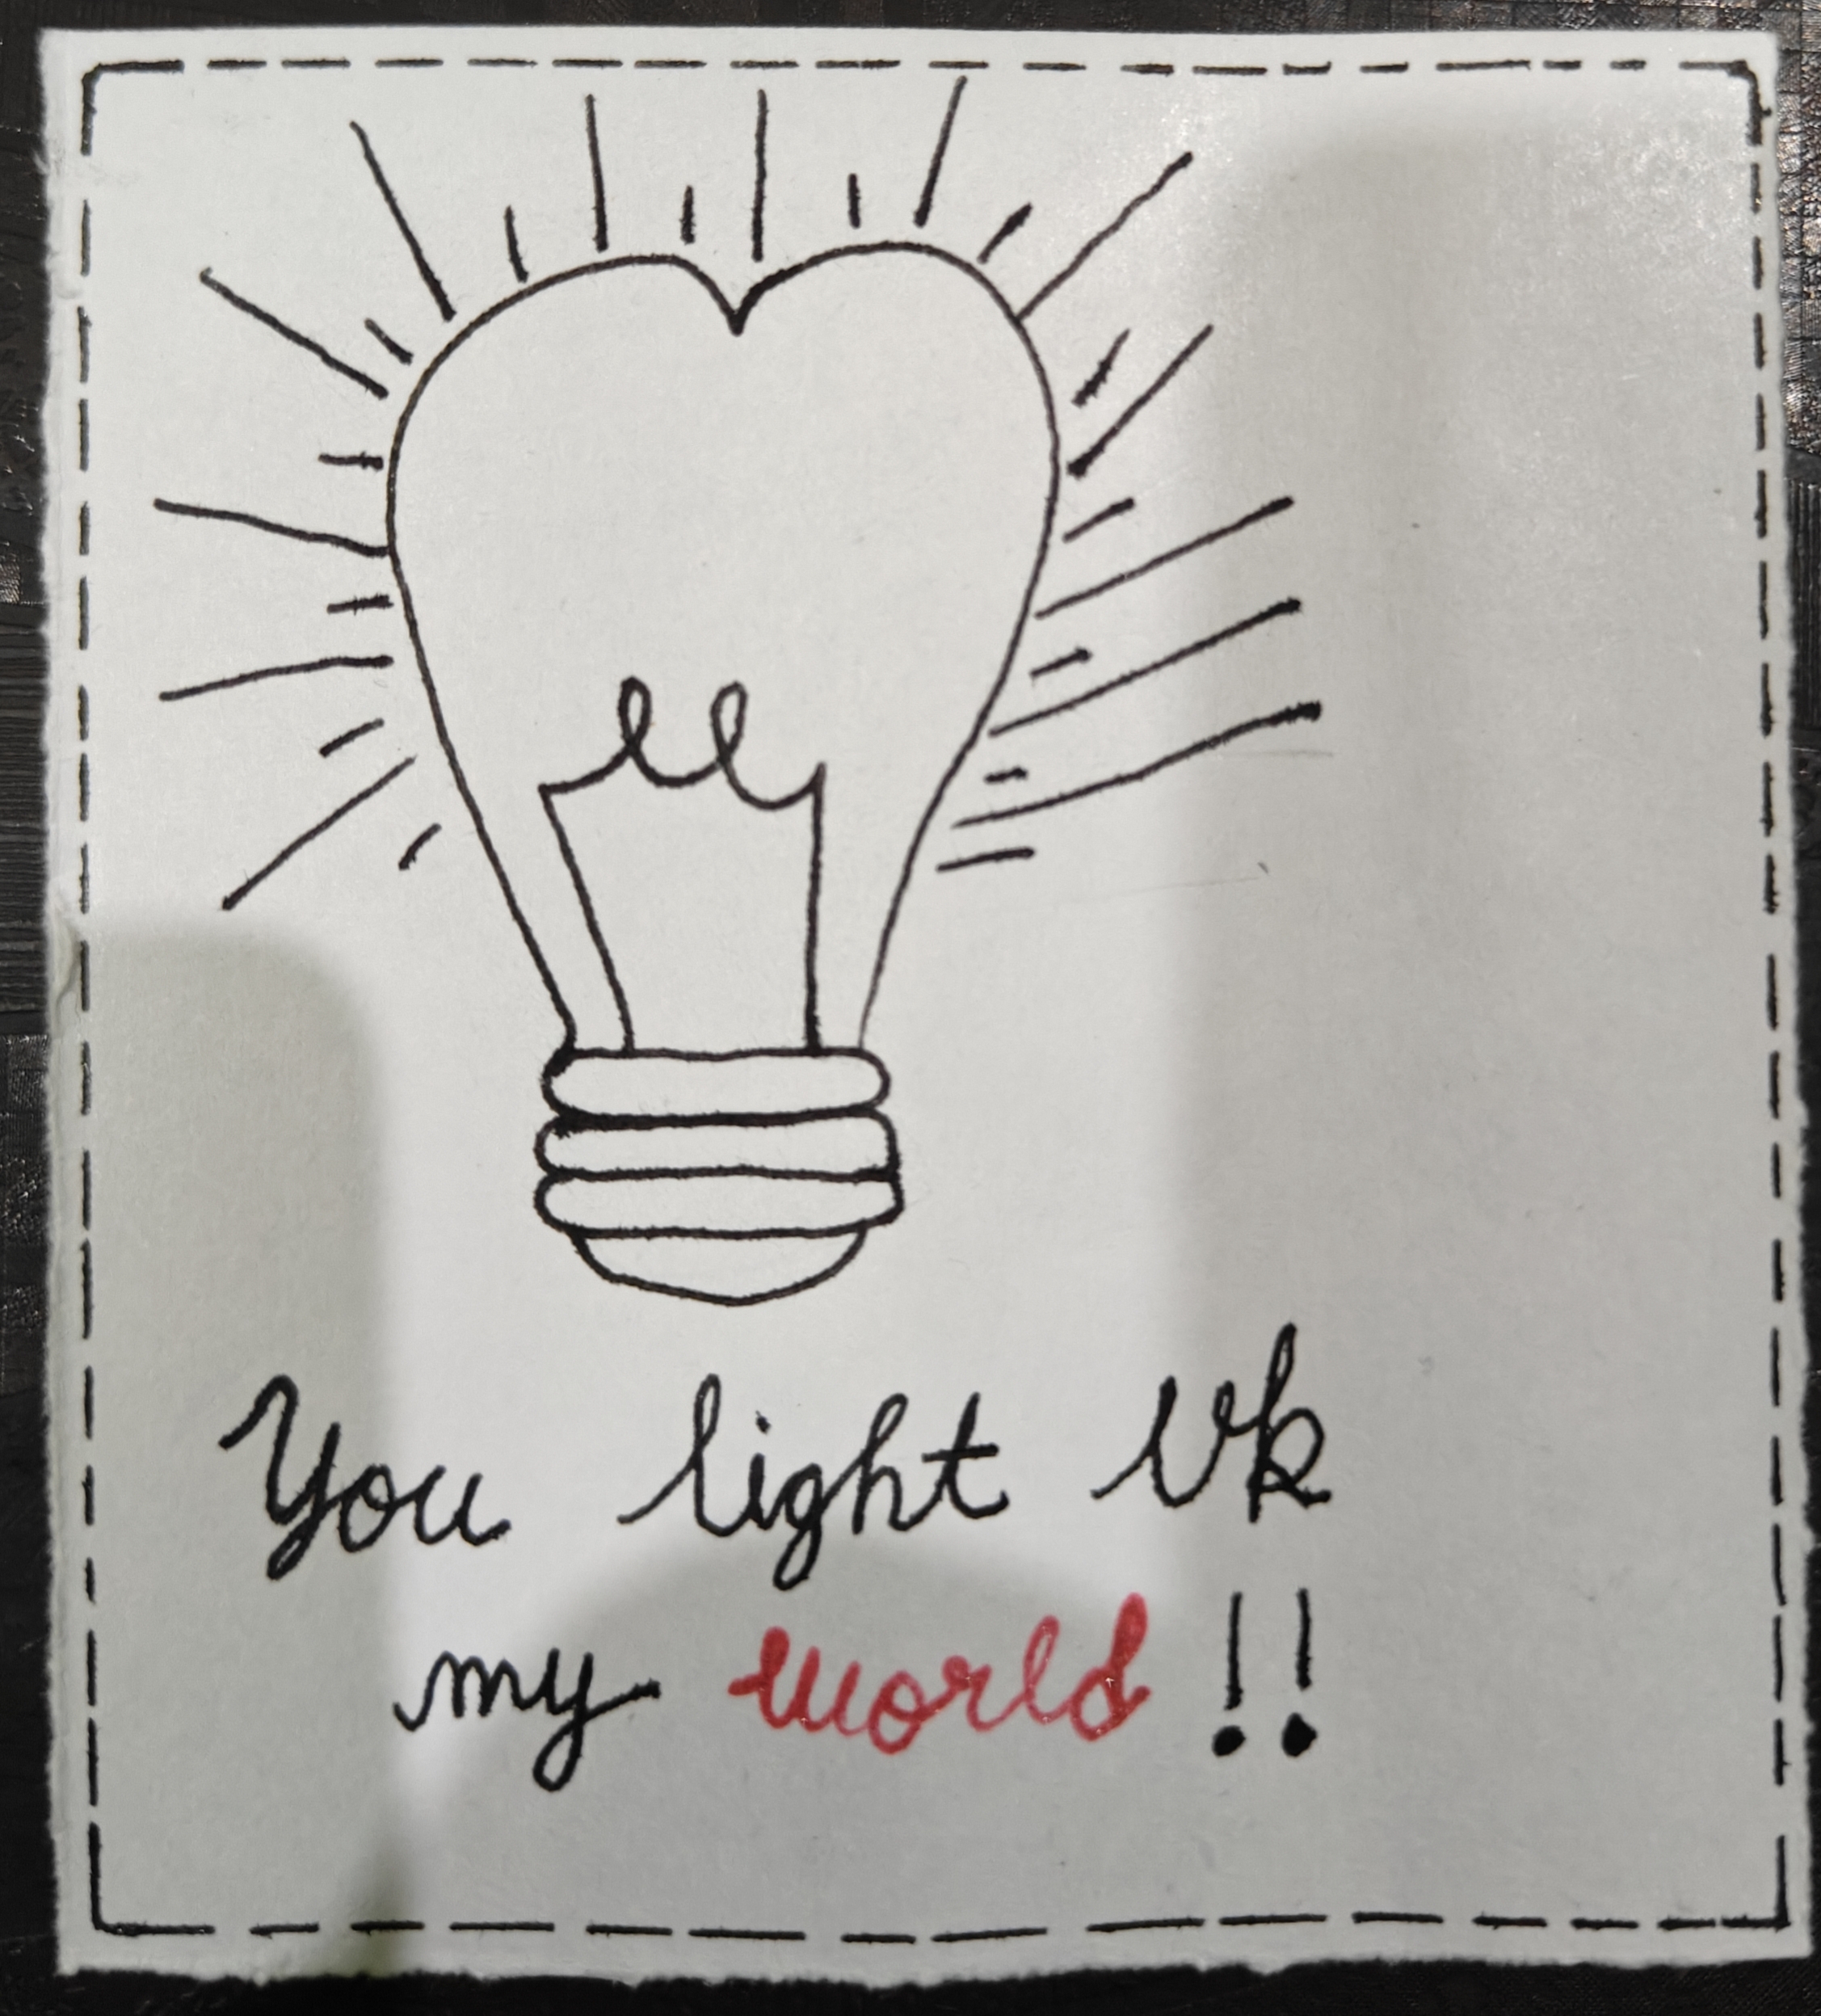 You light Up
my world !!